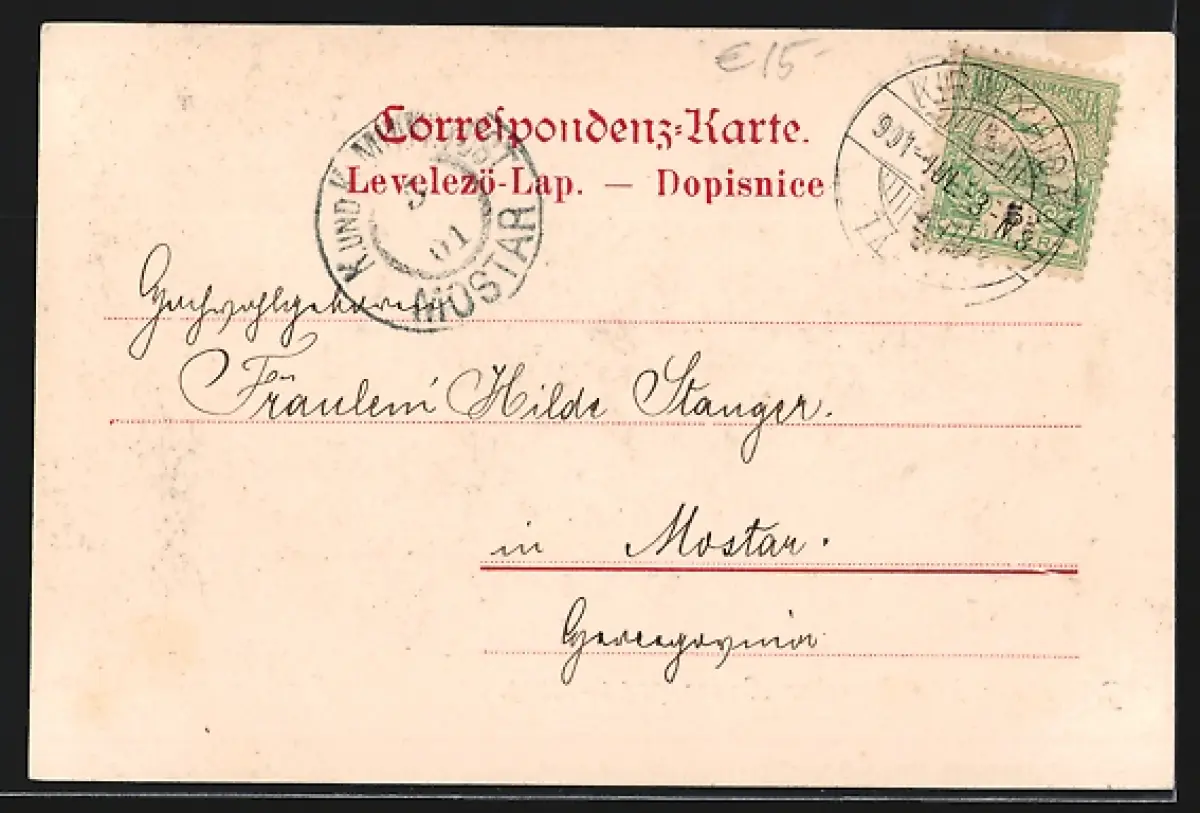 € 15-
Correspondenz-Karte.
Levelező-Lap. — Dopisnice
K. UND K. MIL. POST
5
01
MOSTAR
901 JUL
Hochwohlgeboren
Fräulein Hilde Stanger.
in Mostar.
Hercegovina